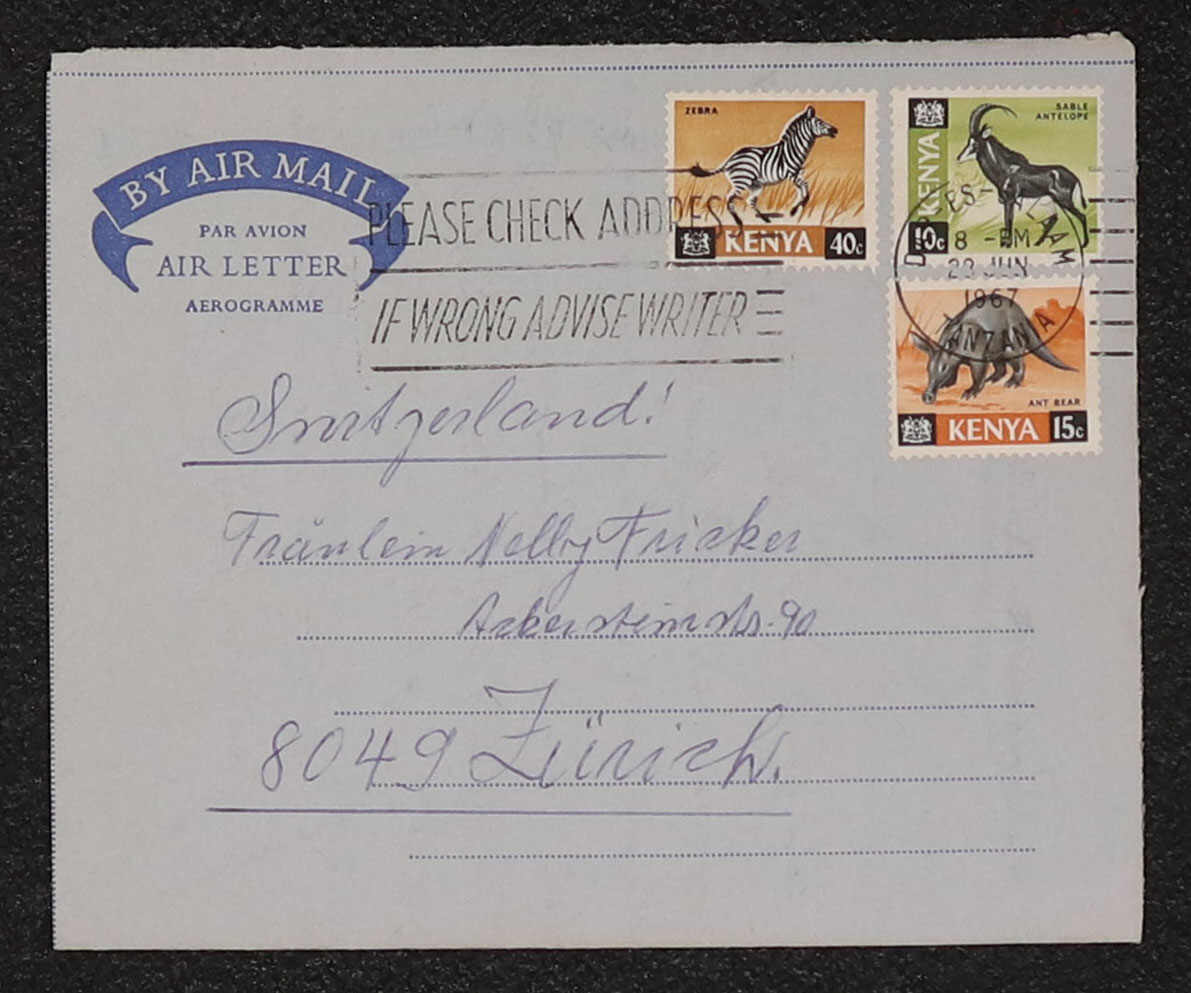 BY AIR MAIL
PAR AVION
AIR LETTER
AEROGRAMME
PLEASE CHECK ADDRESS
IF WRONG ADVISE WRITER
ZEBRA
KENYA 40c
SABLE
ANTELOPE
KENYA
10c
DAR-ES-SALAAM
8 - PM
22 JUN
1967
TANZANIA
ANT BEAR
KENYA 15c
Switzerland!
Fräulein Nelly Fricker
Ackersteinstr. 90
8049 Zürich.